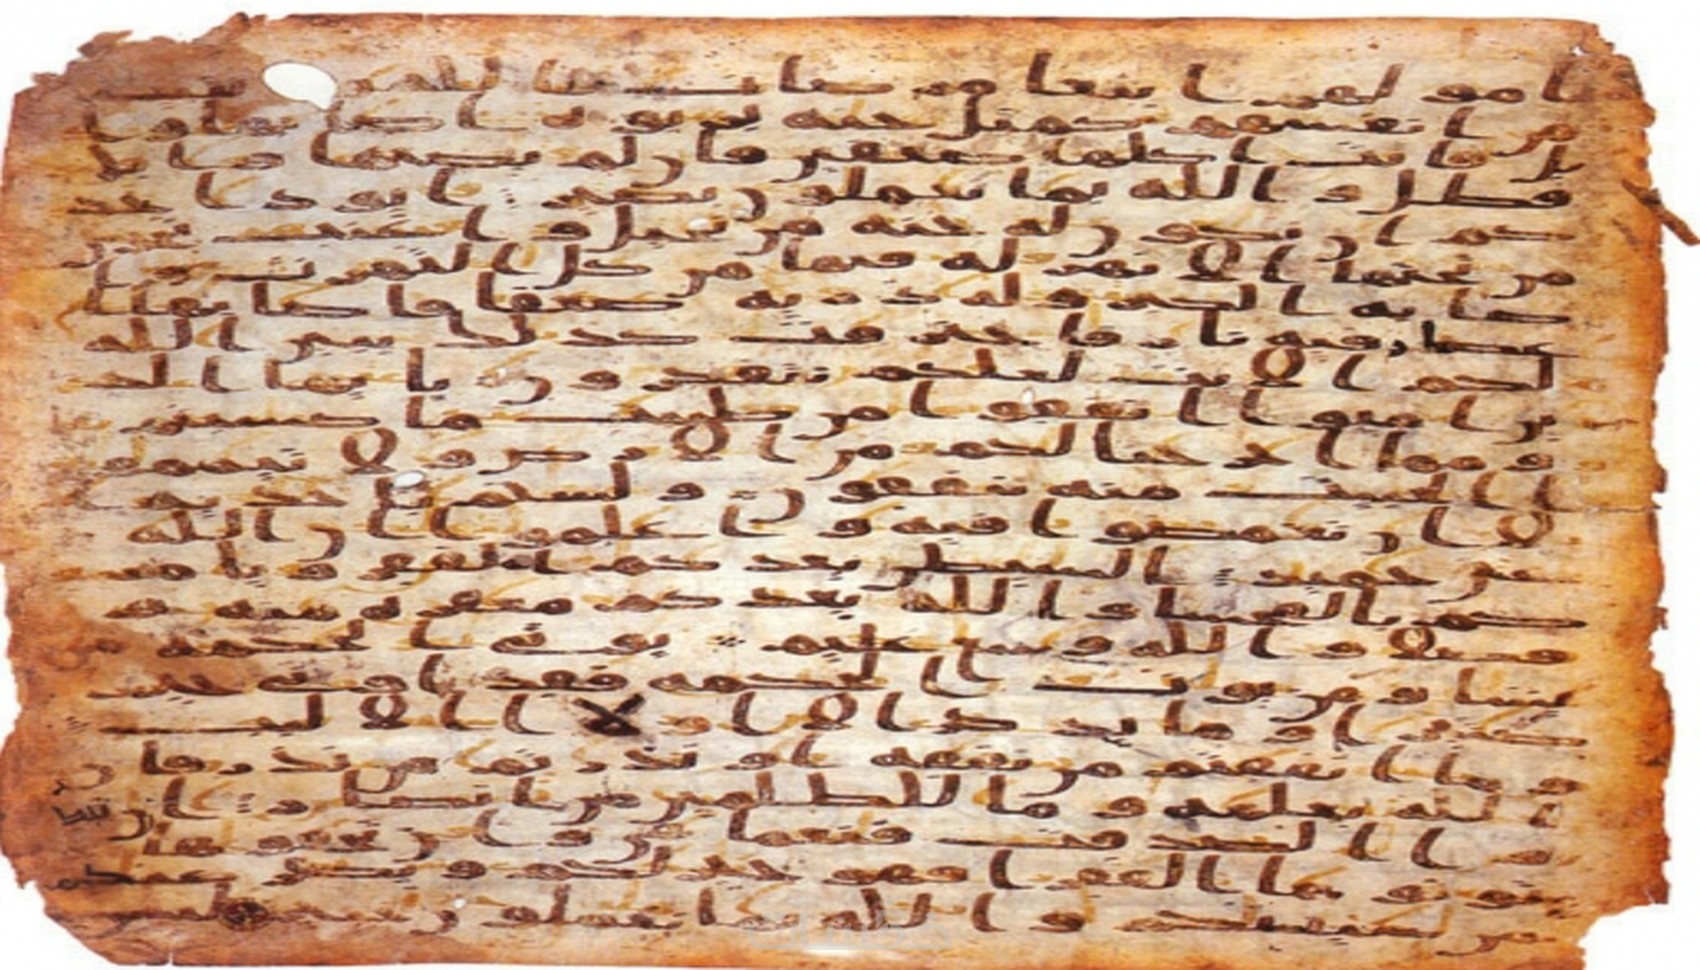 امولهم ابتغا مرضات الله و
من انفسهم كمثل جنة بربوة اصابها وا
بل فاتت اكلها ضعفين فان لم يصبها وا بل
فطل و الله بما تعملون بصير ايود احد
كم ان تكون له جنة من نخيل و اعنب تجري
من تحتها الانهر له فيها من كل الثمرت و ا
صابه الكبر و له ذرية ضعفا فاصابها ا
عصار فيه نار فاحترقت كذلك يبين الله
لكم الايت لعلكم تتفكرون يايها الذ
ين امنوا انفقوا من طيبت ما كسبتم
و مما اخرجنا لكم من الارض و لا تيمموا
الخبيث منه تنفقون و لستم باخذيه
الا ان تغمضوا فيه و اعلموا ان الله
غني حميد الشيطن يعدكم الفقر و يامر
كم بالفحشا و الله يعدكم مغفرة منه و
فضلا و الله وسع عليم يوتي الحكمة من
يشا و من يوت الحكمة فقد اوتي خير
كثيرا و ما يذكر الا اولوا الالبب
و ما انفقتم من نفقة او نذرتم من نذر فان
الله يعلمه و ما للظلمين من انصار ان تبد
وا الصدقت فنعما هي و ان تخفوها
و توتوها الفقرا فهو خير لكم و يكفر عنكم
من سيتكم و الله بما تعملون خبير ليس